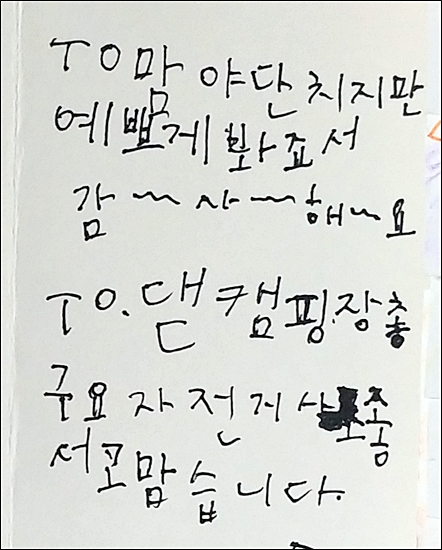 TO맘 야단치지만
예쁘게 봐죠서
감~사~해~요
TO.댇 캠핑.장총
구요 자전거사
서고맘습니다.